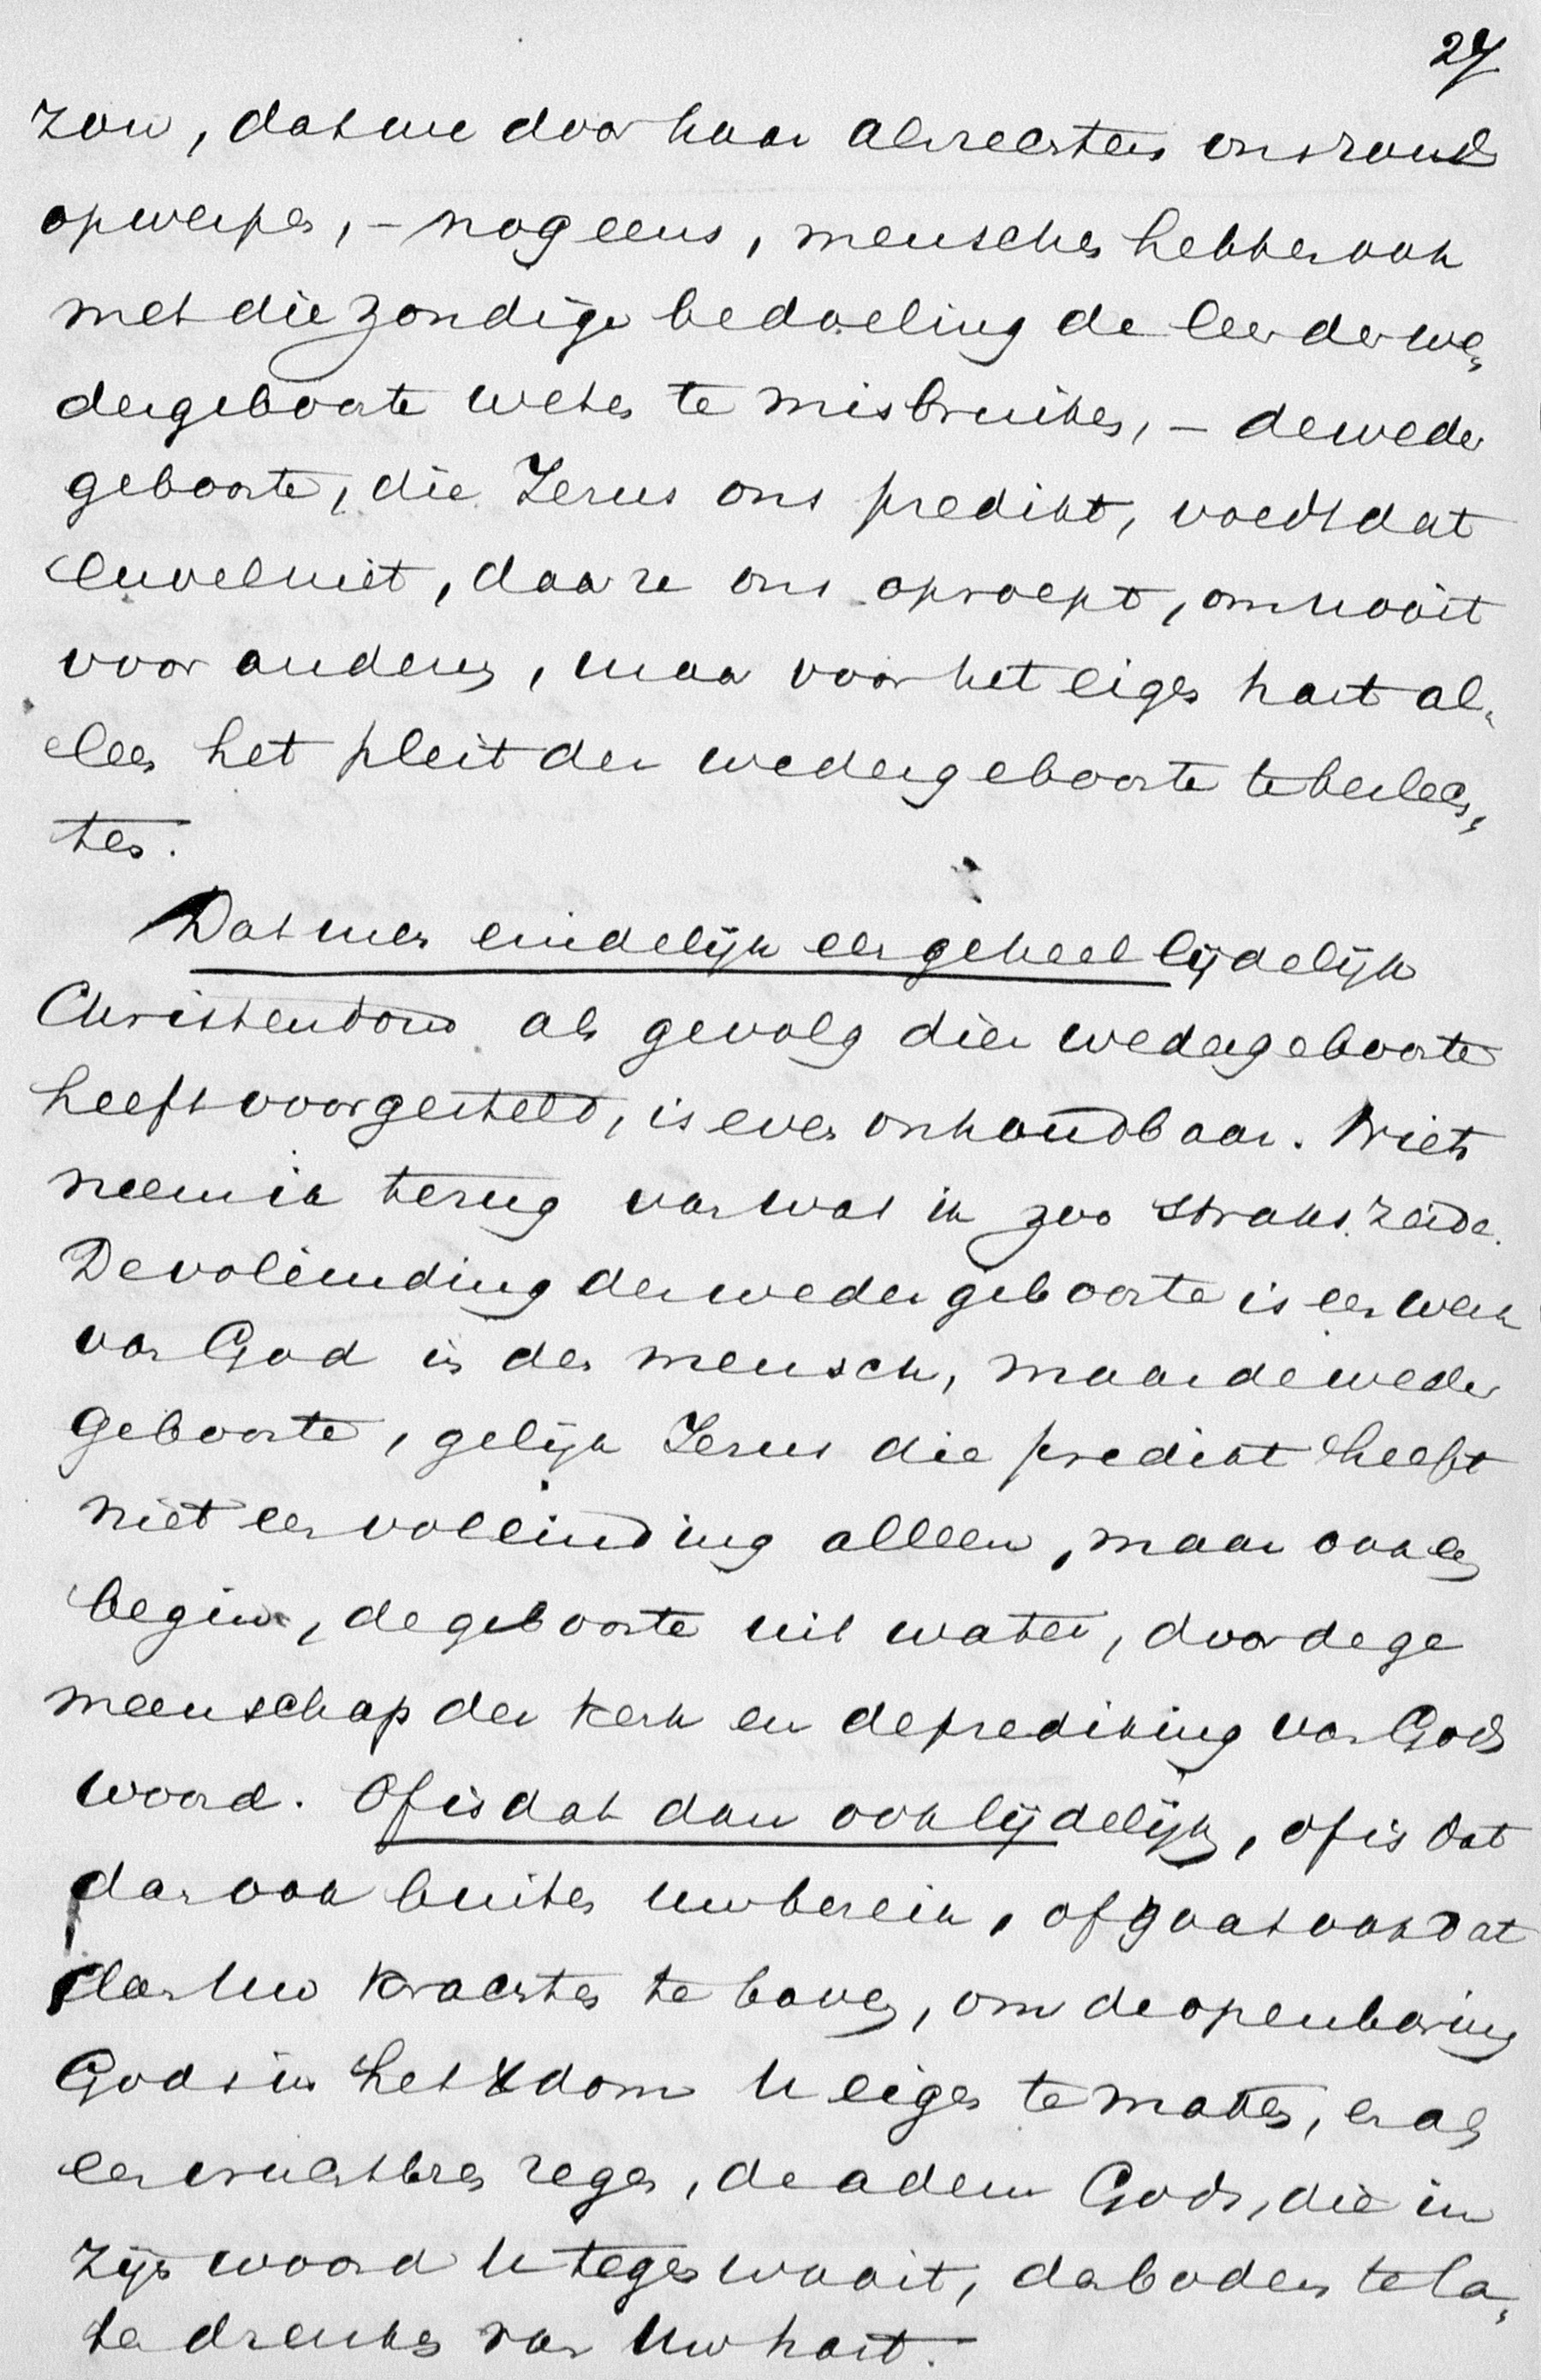 27
zou, dat we door haar als rechters ons zouden
opwerpen, – nog eens, menschen hebben ook
met die zondige bedoeling de leer der we-
dergeboorte weten te misbruiken, – de weder
geboorte, die Jezus ons predikt, voedt dat
euvel niet, daar ze ons oproept, om nooit
voor anderen, maar voor het eigen hart al-
leen het pleit der wedergeboorte te beslech-
ten.
Dat men eindelijk een geheel lijdelijk
Christendom als gevolg dier wedergeboorte
heeft voorgesteld, is even onhoudbaar. Niets
neem ik terug van wat ik zoo straks zeide.
De voleinding der wedergeboorte is een werk
van God in den mensch, maar de weder
geboorte, gelijk Jezus die predikt heeft
niet een voleinding alleen, maar ook een
begin, de geboorte uit water, door de ge
meenschap der kerk en de prediking van Gods
woord. Of is dat dan ook lijdelijk, of is dat
dan ook buiten uw bereik, of gaat ook dat
dan Uw krachten te boven, om de openbaring
Gods in het Xdom U eigen te maken, en als
een vruchtbren regen, de adem Gods, die in
zijn woord U tegen waait, den bodem te la-
ten drenken van Uw hart.